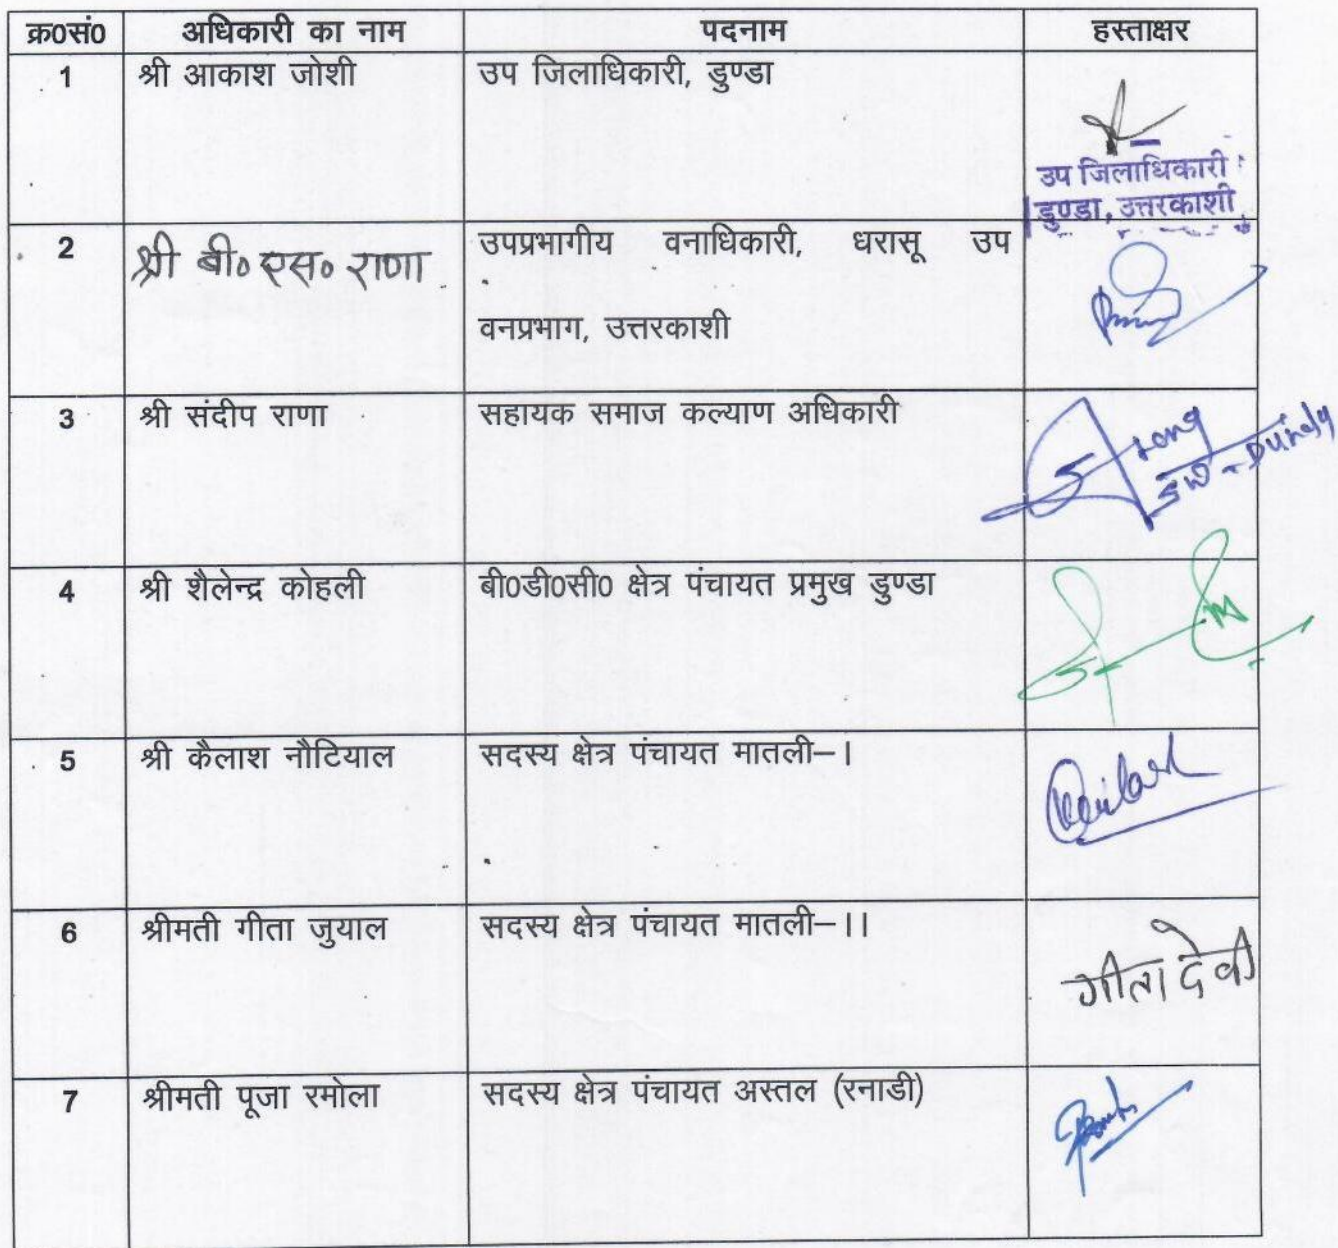 क्र0सं0 अधिकारी का नाम पदनाम हस्ताक्षर
1 श्री आकाश जोशी उप जिलाधिकारी, डुण्डा
उप जिलाधिकारी
डुण्डा, उत्तरकाशी
2 श्री बी० एस० राणा उपप्रभागीय वनाधिकारी, धरासू उप
वनप्रभाग, उत्तरकाशी
3 श्री संदीप राणा सहायक समाज कल्याण अधिकारी
4 श्री शैलेन्द्र कोहली बी0डी0सी0 क्षेत्र पंचायत प्रमुख डुण्डा
5 श्री कैलाश नौटियाल सदस्य क्षेत्र पंचायत मातली–।
Kailash
6 श्रीमती गीता जुयाल सदस्य क्षेत्र पंचायत मातली–।।
गीता देवी
7 श्रीमती पूजा रमोला सदस्य क्षेत्र पंचायत अस्तल (रनाडी)